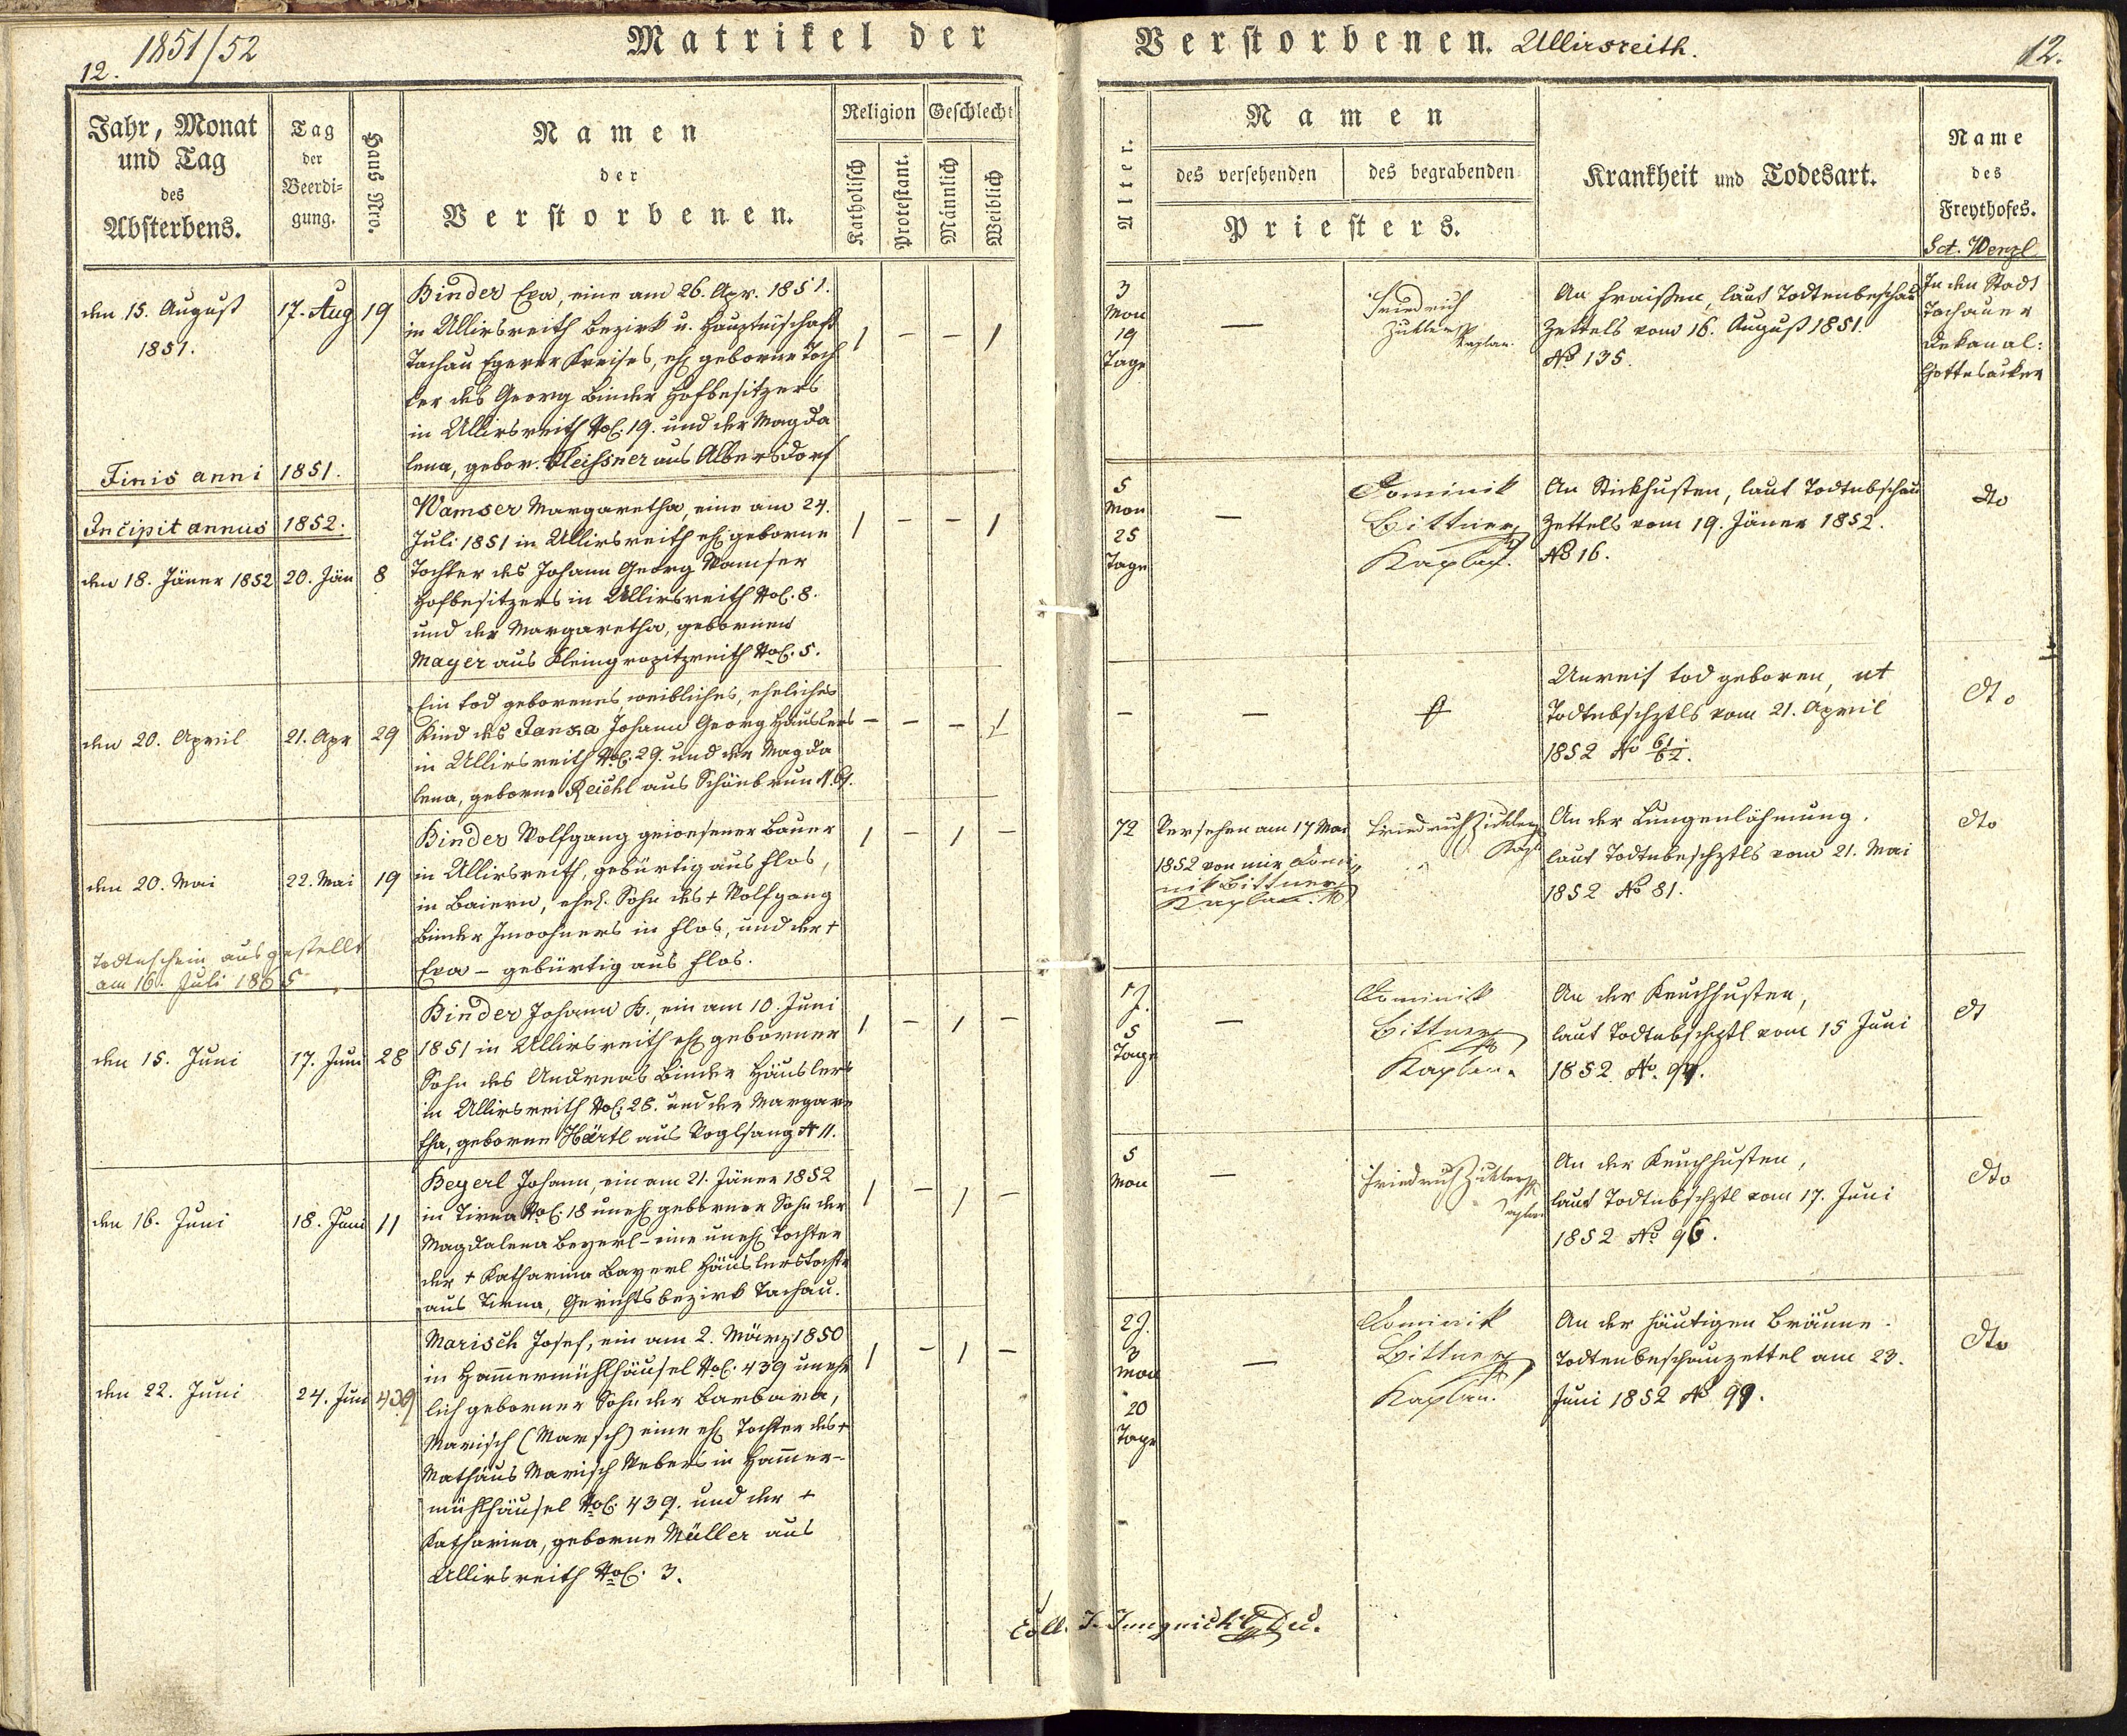 12. 1851/52
Matrikel der Verstorbenen. Ullirsreith.
12.
Jahr, Monat
und Tag
des
Absterbens.
Tag
der
Beerdi=
gung.
Haus Nro.
Namen
der
Verstorbenen.
Religion
Geschlecht
Katholisch
Protestant.
Männlich
Weiblich
Alter.
Namen
des versehenden
des begrabenden
Priesters.
Krankheit und Todesart.
Name
des
Freythofes.
Sct. Wenzl
den 15. August
1851.
17. Aug
19
Binder Eva, eine am 26. Apr. 1851.
in Ullirsreith Bezirk u. Hauptmschaft
Tachau Egerer Kreises, ehl geborne Toch
ter des Georg Binder Hofbesitzers
in Ullirsreith NoC. 19. und der Magda
lena, gebor. Fleissner aus Albersdorf
1 – – 1
3
Mon
19
Tage
—
Friedrich
Zuttner
Kaplan.
An Fraißen, laut Todtenbeschau
Zettels vom 16. August 1851.
No 135.
In den Stadt
Tachauer
Dekanal:
Gottesacker
Finis anni 1851.
Incipit annus 1852.
den 18. Jäner 1852
20. Jän
8
Wamser Margaretha, eine am 24.
Juli 1851 in Ullirsreith ehl geborne
Tochter des Johann Georg Wamser
Hofbesitzers in Ullirsreith NoC. 8.
und der Margaretha, gebornen
Mayer aus Kleingropitzreith NoC. 5.
1 – – 1
5
Mon
25
Tage
—
Dominik
Bittner
Kaplan.
An Stickhusten, laut Todtnbschau
Zettels vom 19. Jäner 1852.
No 16.
dto
den 20. April
21. Apr
29
Ein tod geborenes, weibliches, eheliches
Kind des Janka Johann Georg Häuslers
in Ullirsreith NoC. 29. und der Magda
lena, geborne Reichl aus Schönbrun N. 61.
– – – 1
–
—
Unreif tod geboren, ut
Todtnbschztls vom 21. April
1852 No 61/62.
dto
den 20. Mai
22. Mai
19
Binder Wolfgang gewesener Bauer
in Ullirsreith, gebürtig aus Flos,
in Baiern, ehel. Sohn des + Wolfgang
Binder Inwohners in Flos, und der +
Eva – gebürtig aus Flos.
1 – 1 –
72
Versehen am 17 Mai
1852 von mir Domi
nik Bittner
Kaplan.
Friedrich Zuttner
Kapl
An der Lungenlähmung.
laut Todtnbeschztls vom 21. Mai
1852 No 81.
dto
Todtenschein ausgestellt
am 16. Juli 1865
den 15. Juni
17. Juni
28
Binder Johann B., ein am 10. Juni
1851 in Ullirsreith ehl geborner
Sohn des Andreas Binder Häuslers
in Ullirsreith NoC. 28. und der Margare
tha, geborne Härtl aus Voglsang N 11.
1 – 1 –
1 J.
5
Tage
—
Dominik
Bittner
Kaplan.
An der Keuchhusten,
laut Todtnbschztl vom 15 Juni
1852 No. 94.
dt
den 16. Juni
18. Juni
11
Beyerl Johann, ein am 21. Jäner 1852
in Tirna NoC. 18 unehl geborner Sohn der
Magdalena Beyerl – eine unehl Tochter
der + Katharina Bayerl Häuslerstocht
aus Tirna, Gerichtsbezirk Tachau.
1 – 1 –
5
Mon
—
Friedrich Zuttner
Kaplan
An der Keuchhusten,
laut Todtnbschztl vom 17. Juni
1852 No 96.
dto
den 22. Juni
24. Jun
439
Marisch Josef, ein am 2. März 1850
in Hammermühlhäusel NoC. 439 unehe
lich geborner Sohn der Barbara,
Marisch (Marsch) eine ehl Tochter des +
Mathäus Marisch Webers in Hammer-
mühlhäusel NoC. 439. und der +
Katharina, geborne Müller aus
Ullirsreith NoC. 3.
1 – 1 –
2 J.
3
Mon
20
Tage
—
Dominik
Bittner
Kaplan.
An der häutigen Bräune.
Todtenbeschauzettel am 23.
Juni 1852 No 99.
dto
Coll. J. Jungnickl Dec.